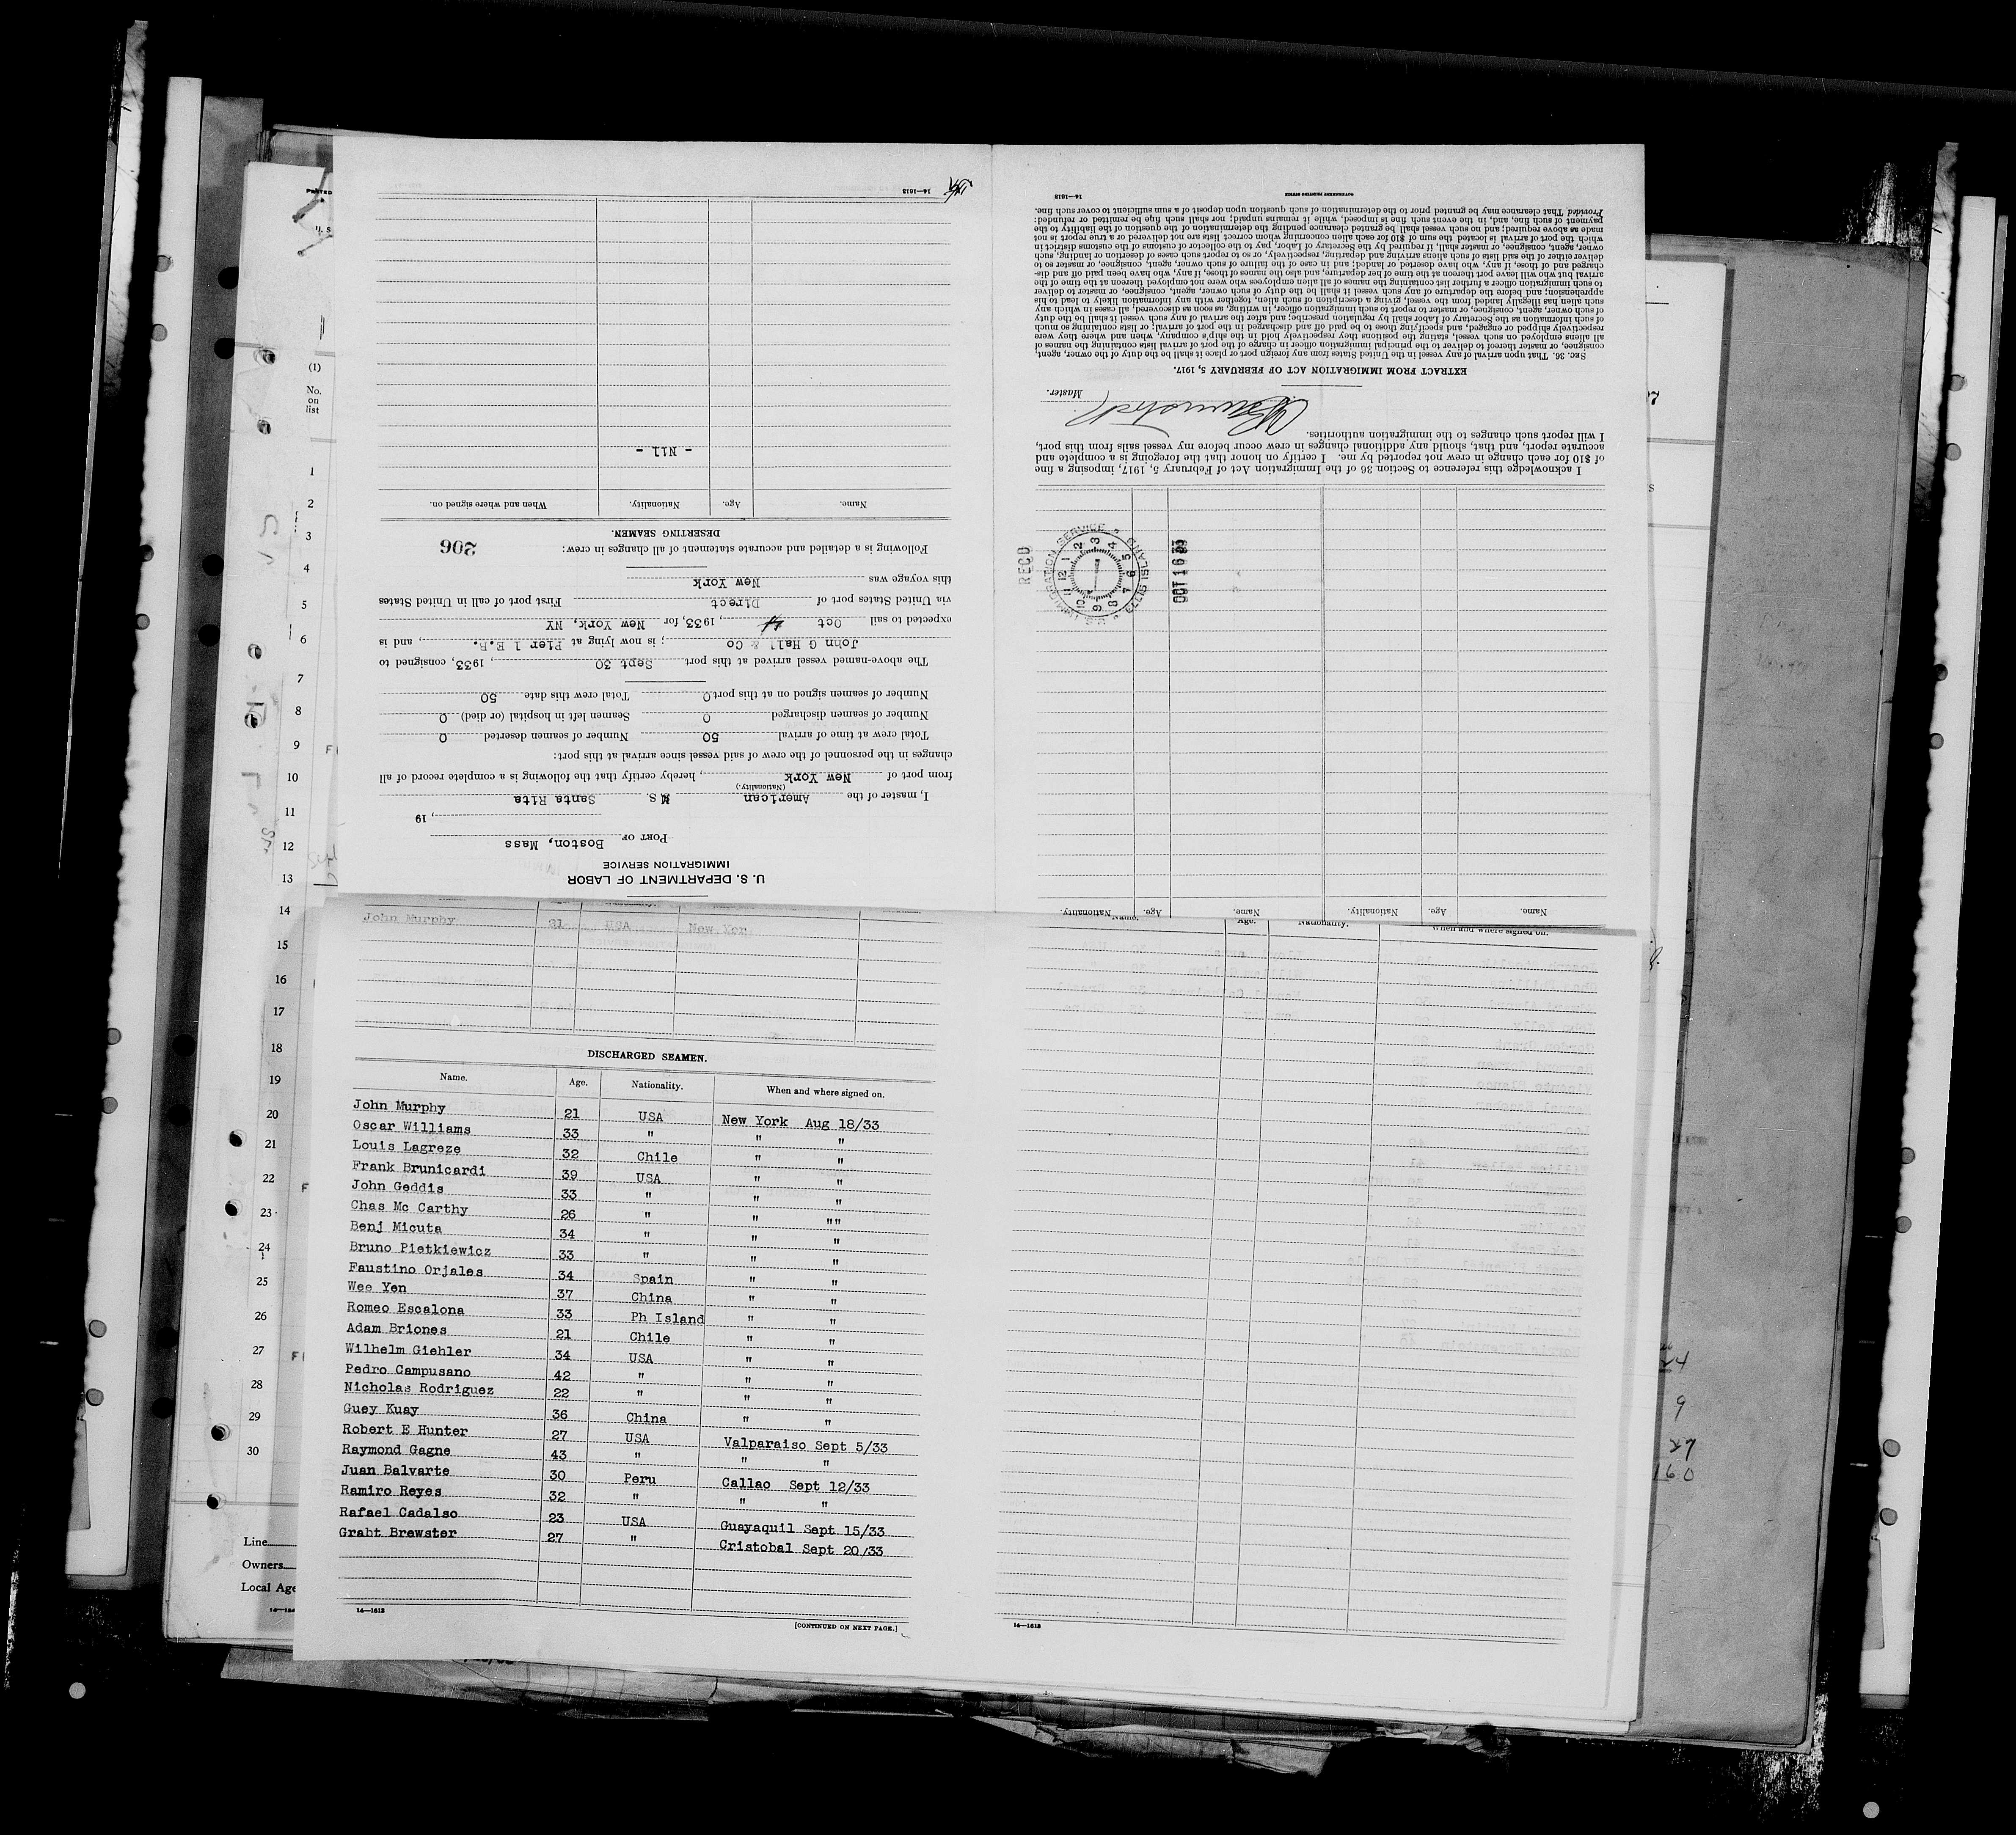 U. S. DEPARTMENT OF LABOR
IMMIGRATION SERVICE
PORT OF Boston, Mass
, 19
I, master of the American M S. Santa Rita
(Nationality.)
from port of New York, hereby certify that the following is a complete record of all
changes in the personnel of the crew of said vessel since arrival at this port:
Total crew at time of arrival 50 Number of seamen deserted 0
Number of seamen discharged 0 Seamen left in hospital (or died) 0
Number of seamen signed on at this port 0 Total crew this date 50
The above-named vessel arrived at this port Sept 30, 1933, consigned to
John G Hall & Co; is now lying at Pier 1 E.B., and is
expected to sail Oct, 1933, for New York, NY
via United States port of Direct First port of call in United States
this voyage was New York
Following is a detailed and accurate statement of all changes in crew: 206
DESERTING SEAMEN.
Name. Age. Nationality. When and where signed on.
- Nil -
14—1613
Name. Age. Nationality. Name. Age. Nationality.
RECD
U.S. IMMIGRATION SERVICE ELLIS ISLAND
12 1 2 3 4 5 6 7 8 9 10 11
OCT 16 33
I acknowledge this reference to Section 36 of the Immigration Act of February 5, 1917, imposing a fine
of $10 for each change in crew not reported by me. I certify on honor that the foregoing is a complete and
accurate report, and that, should any additional changes in crew occur before my vessel sails from this port,
I will report such changes to the immigration authorities.
Master.
EXTRACT FROM IMMIGRATION ACT OF FEBRUARY 5, 1917.
SEC. 36. That upon arrival of any vessel in the United States from any foreign port or place it shall be the duty of the owner, agent,
consignee, or master thereof to deliver to the principal immigration officer in charge of the port of arrival lists containing the names of
all aliens employed on such vessel, stating the positions they respectively hold in the ship's company, when and where they were
respectively shipped or engaged, and specifying those to be paid off and discharged in the port of arrival; or lists containing so much
of such information as the Secretary of Labor shall by regulation prescribe; and after the arrival of any such vessel it shall be the duty
of such owner, agent, consignee, or master to report to such immigration officer, in writing, as soon as discovered, all cases in which any
such alien has illegally landed from the vessel, giving a description of such alien, together with any information likely to lead to his
apprehension; and before the departure of any such vessel it shall be the duty of such owner, agent, consignee, or master to deliver
to such immigration officer a further list containing the names of all alien employees who were not employed thereon at the time of the
arrival but who will leave port thereon at the time of her departure, and also the names of those, if any, who have been paid off and dis-
charged and of those, if any, who have deserted or landed; and in case of the failure of such owner, agent, consignee, or master so to
deliver either of the said lists of such aliens arriving and departing, respectively, or so to report such cases of desertion or landing, such
owner, agent, consignee, or master shall, if required by the Secretary of Labor, pay to the collector of customs of the customs district in
which the port of arrival is located the sum of $10 for each alien concerning whom correct lists are not delivered or a true report is not
made as above required; and no such vessel shall be granted clearance pending the determination of the question of the liability to the
payment of such fine, and, in the event such fine is imposed, while it remains unpaid; nor shall such fine be remitted or refunded:
Provided That clearance may be granted prior to the determination of such question upon deposit of a sum sufficient to cover such fine.
14—1613 GOVERNMENT PRINTING OFFICE
John Murphy 21 USA New Yor
Age. Nationality. When and where signed on.
DISCHARGED SEAMEN.
Name. Age. Nationality. When and where signed on.
John Murphy 21 USA New York Aug 18/33
Oscar Williams 33 " " "
Louis Lagreze 32 Chile " "
Frank Brunicardi 39 USA " "
John Geddis 33 " " "
Chas Mc Carthy 26 " " ""
Benj Micuta 34 " " "
Bruno Pietkiewicz 33 " " "
Faustino Orjales 34 Spain " "
Wee Yen 37 China " "
Romeo Escalona 33 Ph Island " "
Adam Briones 21 Chile " "
Wilhelm Giehler 34 USA " "
Pedro Campusano 42 " " "
Nicholas Rodriguez 22 " " "
Guey Kuay 36 China " "
Robert E Hunter 27 USA Valparaiso Sept 5/33
Raymond Gagne 43 " " "
Juan Balvarte 30 Peru Callao Sept 12/33
Ramiro Reyes 32 " " "
Rafael Cadalso 23 USA Guayaquil Sept 15/33
Graht Brewster 27 " Cristobal Sept 20/33
14—1613
[CONTINUED ON NEXT PAGE.]
14—1613
(1)
No.
on
list
1
2
3
4
5
6
7
8
9
10
11
12
13
14
15
16
17
18
19
20
21
22
23
24
25
26
27
28
29
30
Line
Owners
Local Age
24
9
27
160